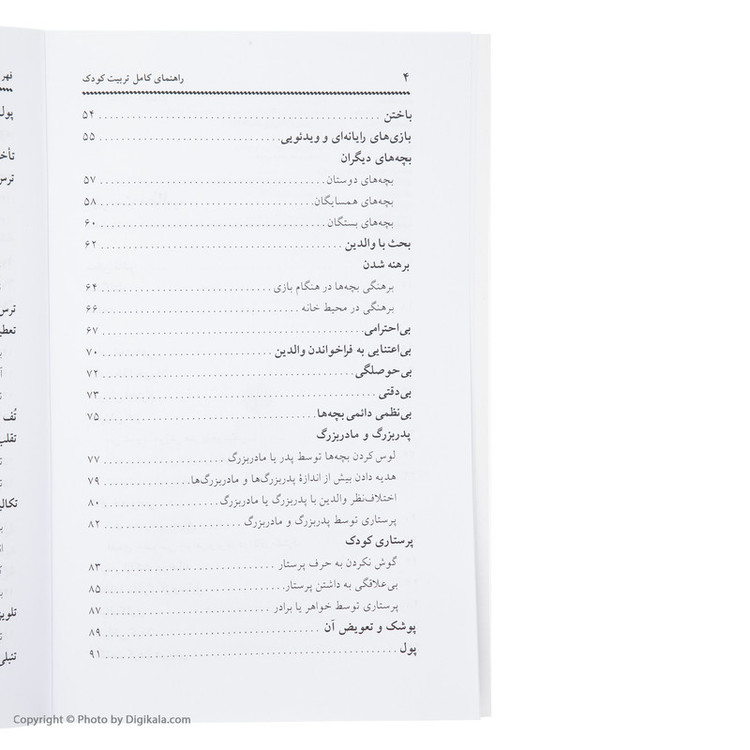 ۴ راهنمای کامل تربیت کودک
باختن ۵۴
بازی‌های رایانه‌ای و ویدئویی ۵۵
بچه‌های دیگران
بچه‌های دوستان ۵۷
بچه‌های همسایگان ۵۸
بچه‌های بستگان ۶۰
بحث با والدین ۶۲
برهنه شدن
برهنگی بچه‌ها در هنگام بازی ۶۴
برهنگی در محیط خانه ۶۶
بی‌احترامی ۶۷
بی‌اعتنایی به فراخواندن والدین ۷۰
بی‌حوصلگی ۷۲
بی‌دقتی ۷۳
بی‌نظمی دائمی بچه‌ها ۷۵
پدربزرگ و مادربزرگ
لوس کردن بچه‌ها توسط پدر یا مادربزرگ ۷۷
هدیه دادن بیش از اندازهٔ پدربزرگ‌ها و مادربزرگ‌ها ۷۹
اختلاف‌نظر والدین با پدربزرگ یا مادربزرگ ۸۰
پرستاری توسط پدربزرگ و مادربزرگ ۸۲
پرستاری کودک
گوش نکردن به حرف پرستار ۸۳
بی‌علاقگی به داشتن پرستار ۸۵
پرستاری توسط خواهر یا برادر ۸۷
پوشک و تعویض آن ۸۹
پول ۹۱
پول
ترس
ترس
تُف
تقلب
Copyright © Photo by Digikala.com